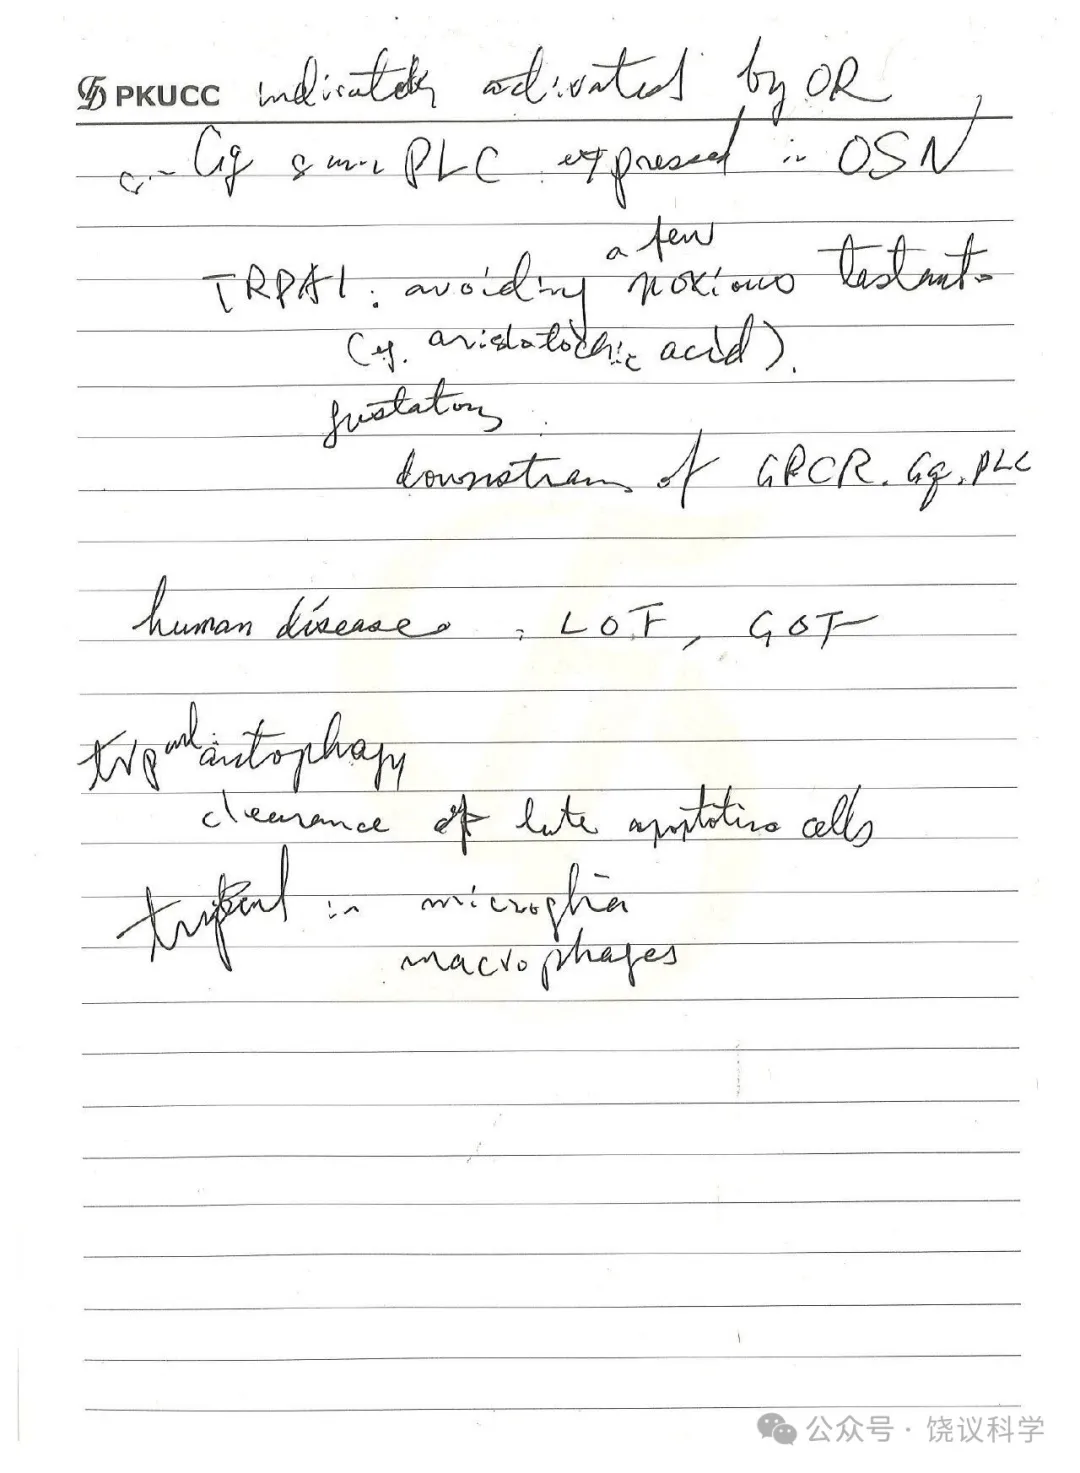 PKUCC indicated activated by OR
Gq PLC expressed in OSN
a few
TRPA1: avoiding noxious tastants
(eg. aristolochic acid).
gustatory
downstream of GPCR. Gq. PLC
human disease: LOF, GOF
trpml: autophagy
clearance of late apoptotic cells
trpml in microglia
macrophages
公众号·饶议科学